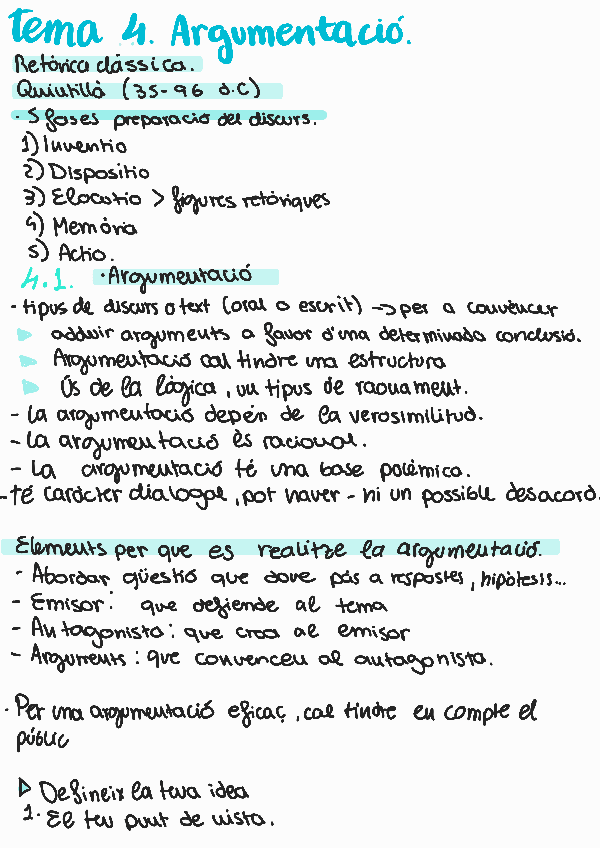 Tema 4. Argumentació.
Retórica clàssica.
Quiutillà (35-96 d.C)
· 5 fases preparació del discurs.
1) Inventio
2) Dispositio
3) Elocutio > figures retòriques
4) Memória
5) Actio.
4.1. · Argumentació
- tipus de discurs o text (oral o escrit) → per a convèncer
▶ adduir arguments a favor d'una determinada conclusió.
▶ Argumentació cal tindre una estructura
▶ Ús de la lògica, un tipus de raonament.
- La argumentació depén de la verosimilitud.
- La argumentació és racional.
- La argumentació té una base polèmica.
- té caràcter dialogal, pot haver-hi un possible desacord.
Elements per que es realitze la argumentació.
- Abordar qüestió que done pas a respostes, hipòtesis...
- Emisor: que defiende al tema
- Antagonista: que crea al emisor
- Arguments: que convencen al antagonista.
· Per una argumentació eficaç, cal tindre en compte el
públic
▷ Defineix la teva idea
1. El teu punt de vista.